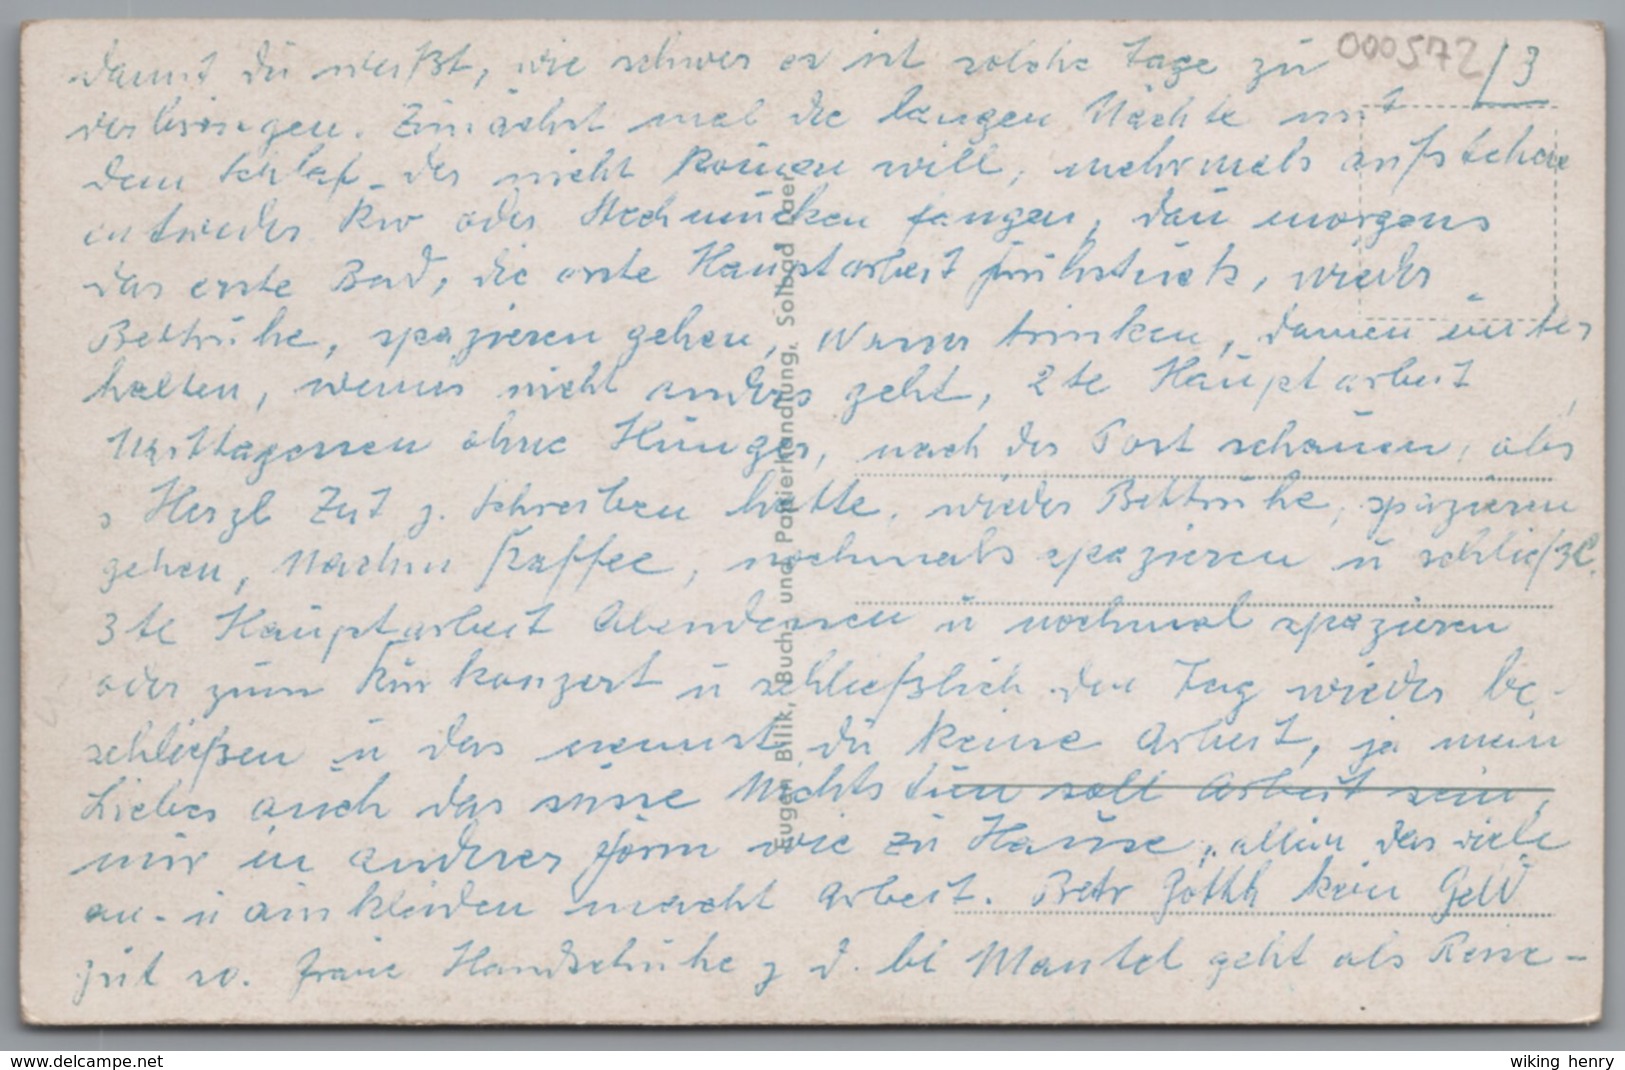 000572
/3
damit du weißt, wie schwer es ist solche Tage zu
verbringen. Zunächst mal die langen Nächte mit
dem Schlaf der nicht kommen will, mehrmals aufstehen
entweder oder Stechmücken fangen, dann morgens
das erste Bad, die erste Hauptarbeit Frühstück, wieder
Bettruhe, spazieren gehen, Wasser trinken, Damen unter
halten, wenns nicht anders geht, 2te Hauptarbeit
Mittagessen ohne Hunger, nach der Post schauen, obs
s Herzl Zeit z. Schreiben hatte, wieder Bettruhe, spazieren
gehen, Nachm Kaffee, nochmals spazieren u schließl.
3te Hauptarbeit Abendessen u nochmal spazieren
oder zum Kurkonzert u schließlich den Tag wieder be-
schließen u das nennst du keine Arbeit, ja mein
Liebes auch das süsse Nichtstun soll Arbeit sein,
nur in anderer Form wie zu Hause, allein das viele
an- u auskleiden macht Arbeit. Betr Kein Geld
gut so. Handschuhe z d. bl Mantel geht als Reise-
Eugen Bilik, Buch- und Papierhandlung, Solbad Laer
www.delcampe.net
wiking henry